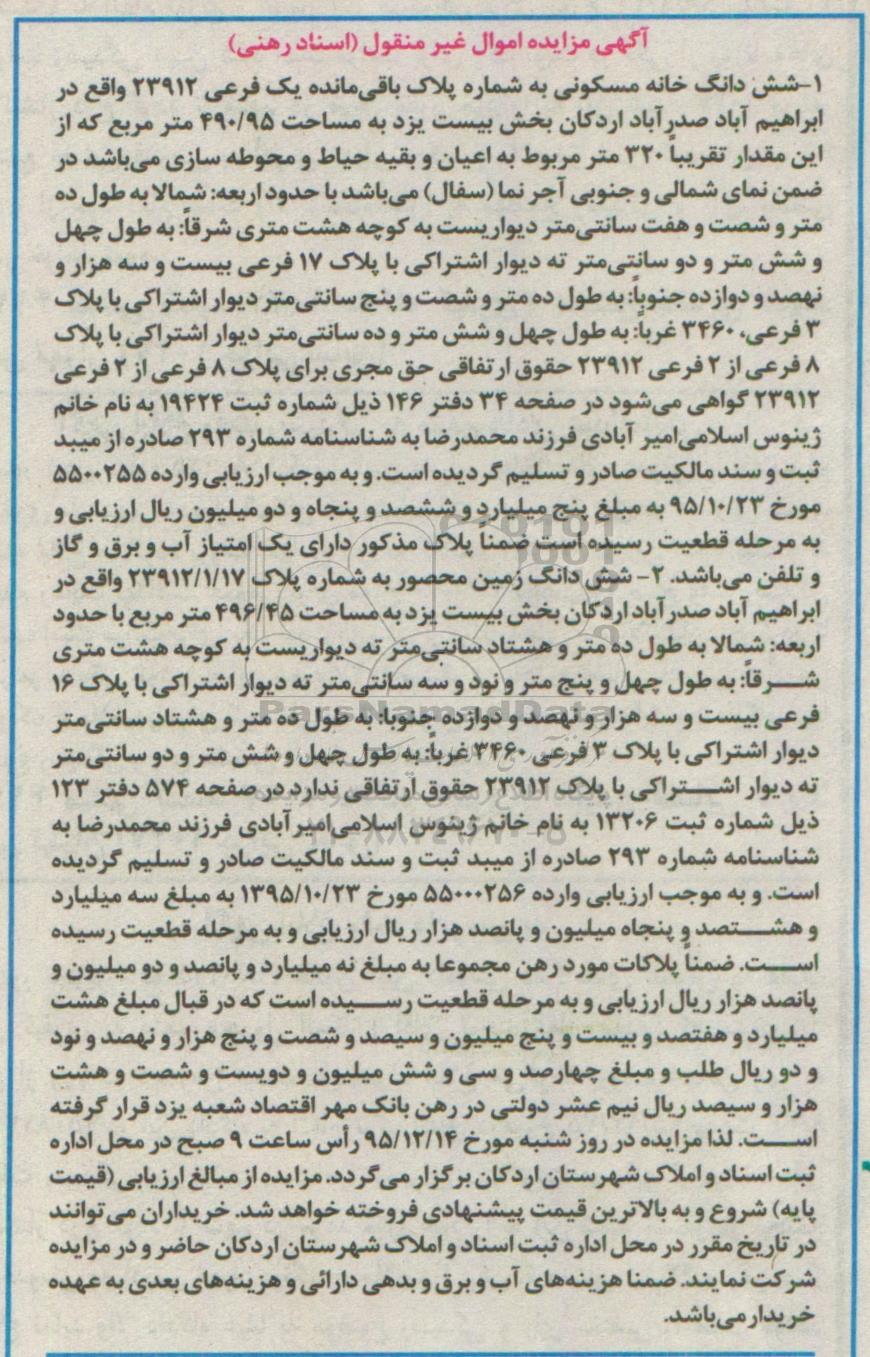 آگهی مزایده اموال غیر منقول (اسناد رهنی)
۱-شش دانگ خانه مسکونی به شماره پلاک باقی‌مانده یک فرعی ۲۳۹۱۲ واقع در
ابراهیم آباد صدرآباد اردکان بخش بیست یزد به مساحت ۴۹۰/۹۵ متر مربع که از
این مقدار تقریباً ۳۲۰ متر مربوط به اعیان و بقیه حیاط و محوطه سازی می‌باشد در
ضمن نمای شمالی و جنوبی آجر نما (سفال) می‌باشد با حدود اربعه: شمالا به طول ده
متر و شصت و هفت سانتی‌متر دیواریست به کوچه هشت متری شرقاً: به طول چهل
و شش متر و دو سانتی‌متر ته دیوار اشتراکی با پلاک ۱۷ فرعی بیست و سه هزار و
نهصد و دوازده جنوباً: به طول ده متر و شصت و پنج سانتی‌متر دیوار اشتراکی با پلاک
۳ فرعی، ۳۴۶۰ غرباً: به طول چهل و شش متر و ده سانتی‌متر دیوار اشتراکی با پلاک
۸ فرعی از ۲ فرعی ۲۳۹۱۲ حقوق ارتفاقی حق مجری برای پلاک ۸ فرعی از ۲ فرعی
۲۳۹۱۲ گواهی می‌شود در صفحه ۳۴ دفتر ۱۴۶ ذیل شماره ثبت ۱۹۴۲۴ به نام خانم
ژینوس اسلامی‌امیر آبادی فرزند محمدرضا به شناسنامه شماره ۲۹۳ صادره از میبد
ثبت و سند مالکیت صادر و تسلیم گردیده است. و به موجب ارزیابی وارده ۵۵۰۰۲۵۵
مورخ ۹۵/۱۰/۲۳ به مبلغ پنج میلیارد و ششصد و پنجاه و دو میلیون ریال ارزیابی و
به مرحله قطعیت رسیده است ضمناً پلاک مذکور دارای یک امتیاز آب و برق و گاز
و تلفن می‌باشد. ۲- شش دانگ زمین محصور به شماره پلاک ۲۳۹۱۲/۱/۱۷ واقع در
ابراهیم آباد صدرآباد اردکان بخش بیست یزد به مساحت ۴۹۶/۴۵ متر مربع با حدود
اربعه: شمالا به طول ده متر و هشتاد سانتی‌متر ته دیواریست به کوچه هشت متری
شرقاً: به طول چهل و پنج متر و نود و سه سانتی‌متر ته دیوار اشتراکی با پلاک ۱۶
فرعی بیست و سه هزار و نهصد و دوازده جنوبا: به طول ده متر و هشتاد سانتی‌متر
دیوار اشتراکی با پلاک ۳ فرعی ۳۴۶۰ غرباً: به طول چهل و شش متر و دو سانتی‌متر
ته دیوار اشتراکی با پلاک ۲۳۹۱۲ حقوق ارتفاقی ندارد در صفحه ۵۷۴ دفتر ۱۲۳
ذیل شماره ثبت ۱۳۲۰۶ به نام خانم ژینوس اسلامی‌امیرآبادی فرزند محمدرضا به
شناسنامه شماره ۲۹۳ صادره از میبد ثبت و سند مالکیت صادر و تسلیم گردیده
است. و به موجب ارزیابی وارده ۵۵۰۰۰۲۵۶ مورخ ۱۳۹۵/۱۰/۲۳ به مبلغ سه میلیارد
و هشتصد و پنجاه میلیون و پانصد هزار ریال ارزیابی و به مرحله قطعیت رسیده
است. ضمناً پلاکات مورد رهن مجموعا به مبلغ نه میلیارد و پانصد و دو میلیون و
پانصد هزار ریال ارزیابی و به مرحله قطعیت رسیده است که در قبال مبلغ هشت
میلیارد و هفتصد و بیست و پنج میلیون و سیصد و شصت و پنج هزار و نهصد و نود
و دو ریال طلب و مبلغ چهارصد و سی و شش میلیون و دویست و شصت و هشت
هزار و سیصد ریال نیم عشر دولتی در رهن بانک مهر اقتصاد شعبه یزد قرار گرفته
است. لذا مزایده در روز شنبه مورخ ۹۵/۱۲/۱۴ رأس ساعت ۹ صبح در محل اداره
ثبت اسناد و املاک شهرستان اردکان برگزار می‌گردد. مزایده از مبالغ ارزیابی (قیمت
پایه) شروع و به بالاترین قیمت پیشنهادی فروخته خواهد شد. خریداران می‌توانند
در تاریخ مقرر در محل اداره ثبت اسناد و املاک شهرستان اردکان حاضر و در مزایده
شرکت نمایند. ضمنا هزینه‌های آب و برق و بدهی دارائی و هزینه‌های بعدی به عهده
خریدار می‌باشد.
ParsNamadData